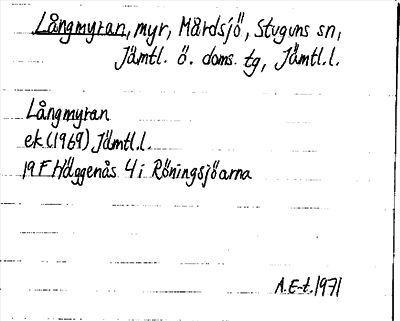 Långmyran, myr, Mårdsjö, Stuguns sn,
Jämtl. ö. doms. tg, Jämtl.l.
Långmyran
ek (1969) Jämtl.l.
19F Häggenås 4i Röningsjöarna
A.E-t. 1971